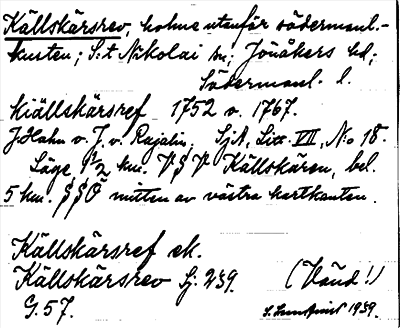 Källskärsrev, holme utanför södermanl.-
kusten; S:t Nikolai sn; Jönåkers hd;
Södermanl. l.
Kiällskärsref 1752 o. 1767.
J. Hahn o. J. v. Rajalin, SjA, Litt. VII, N:o 18.
Läge, 1/2 km. VSV Källskären, bel.
5 km. SSO mitten av västra kartkanten.
Källskärsref ek.
Källskärsrev Sj. 239. (Vänd!)
G. 57. 1939.